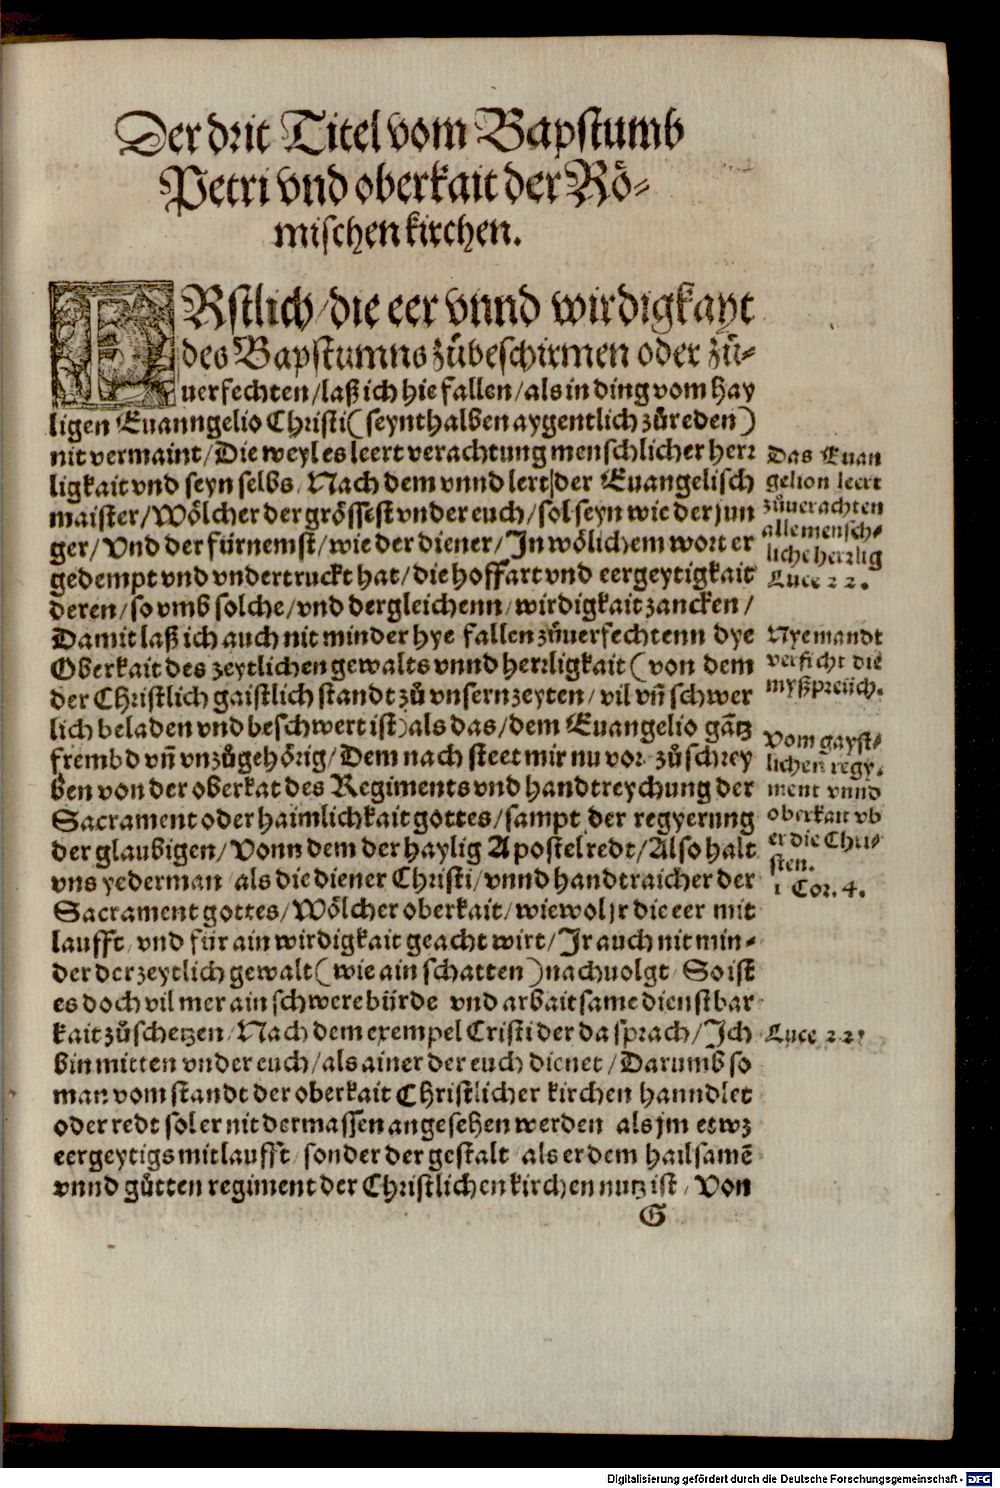 Der drit Titel vom Bapstumb
Petri vnd oberkait der Rö-
mischen kirchen.
ERstlich/die eer vnnd wirdigkayt
des Bapstumns zůbeschirmen oder zů-
uerfechten/laß ich hie fallen/als in ding vom hay
ligen Euanngelio Christi(seynthalben aygentlich zůreden)
nit vermaint/Die weyl es leert verachtung menschlicher herr
ligkait vnd seyn selbs/Nach dem vnnd lert der Euangelisch
maister/Wölcher der grössest vnder euch/sol seyn wie der jun
ger/Vnd der fürnemst/wie der diener/In wölichem wort er
gedempt vnd vndertruckt hat/die hoffart vnd eergeytigkait
deren/so vmb solche/vnd dergleichenn/wirdigkait zancken/
Damit laß ich auch nit minder hye fallen zůuerfechtenn dye
Oberkait des zeytlichen gewalts vnnd herrligkait(von dem
der Christlich gaistlich standt zů vnsern zeyten/vil vñ schwer
lich beladen vnd beschwert ist)als das/dem Euangelio gãtz
frembd vñ vnzůgehörig/Dem nach steet mir nu vor zů schrey
ben von der oberkat des Regiments vnd handtreychung der
Sacrament oder haimlichkait gottes/sampt der regyerung
der glaubigen/Vonn dem der haylig Apostel redt/Also halt
vns yederman als die diener Christi/vnnd handtraicher der
Sacrament gottes/Wölcher oberkait/wiewol jr die eer mit
laufft/vnd für ain wirdigkait geacht wirt/Ir auch nit min-
der der zeytlich gewalt(wie ain schatten)nachuolgt/So ist
es doch vil mer ain schwere bürde vnd arbaitsame dienstbar
kait zů schetzen/Nach dem exempel Cristi der da sprach/Ich
bin mitten vnder euch/als ainer der euch dienet/Darumb so
man vom standt der oberkait Christlicher kirchen hanndlet
oder redt sol er nit dermassen angesehen werden als jm etwz
eergeytigs mitlaufft/sonder der gestalt als er dem hailsamẽ
vnnd gůtten regiment der Christlichen kirchen nutz ist/Von
G
Das Euan
gelion leert
zůuerachten
alle mensch-
liche herrlig
Luce 22.
Nyemandt
verficht die
myßpreüch.
Vom gayst-
lichen regy-
ment vnnd
oberkait vb
er die Chri-
sten.
1 Cor. 4.
Luce 22.
Digitalisierung gefördert durch die Deutsche Forschungsgemeinschaft - DFG